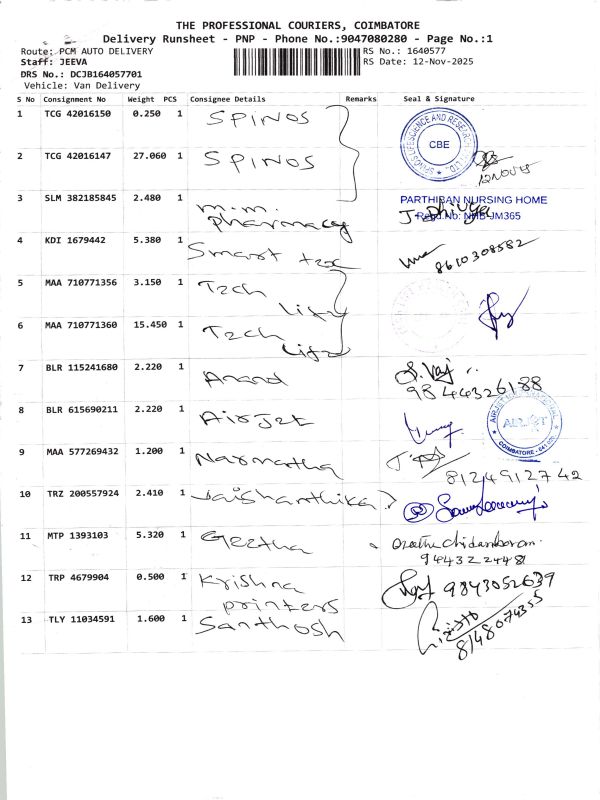 THE PROFESSIONAL COURIERS, COIMBATORE
Delivery Runsheet - PNP - Phone No.:9047080280 - Page No.:1
Route: PCM AUTO DELIVERY
RS No.: 1640577
Staff: JEEVA
RS Date: 12-Nov-2025
DRS No.: DCJB164057701
Vehicle: Van Delivery
S No Consignment No Weight PCS Consignee Details Remarks Seal & Signature
1 TCG 42016150 0.250 1 SPINOS
SPINOS LIFESCIENCE AND RESEARCH
CBE
2 TCG 42016147 27.060 1 SPINOS
12NOV25
3 SLM 382185845 2.480 1 m.m. pharmacy
PARTHIBAN NURSING HOME
Regd.No: NHB JM365
4 KDI 1679442 5.380 1 Smart
8610308582
5 MAA 710771356 3.150 1 Tech
6 MAA 710771360 15.450 1 Tech
7 BLR 115241680 2.220 1 Anand
9844326188
8 BLR 615690211 2.220 1 AirJet
COIMBATORE
9 MAA 577269432 1.200 1 Narmatha
8124912742
10 TRZ 200557924 2.410 1 Jaishanthika
11 MTP 1393103 5.320 1 Geetha
9443224481
12 TRP 4679904 0.500 1 Krishna
printers
9843052639
13 TLY 11034591 1.600 1 Santhosh
8148074355